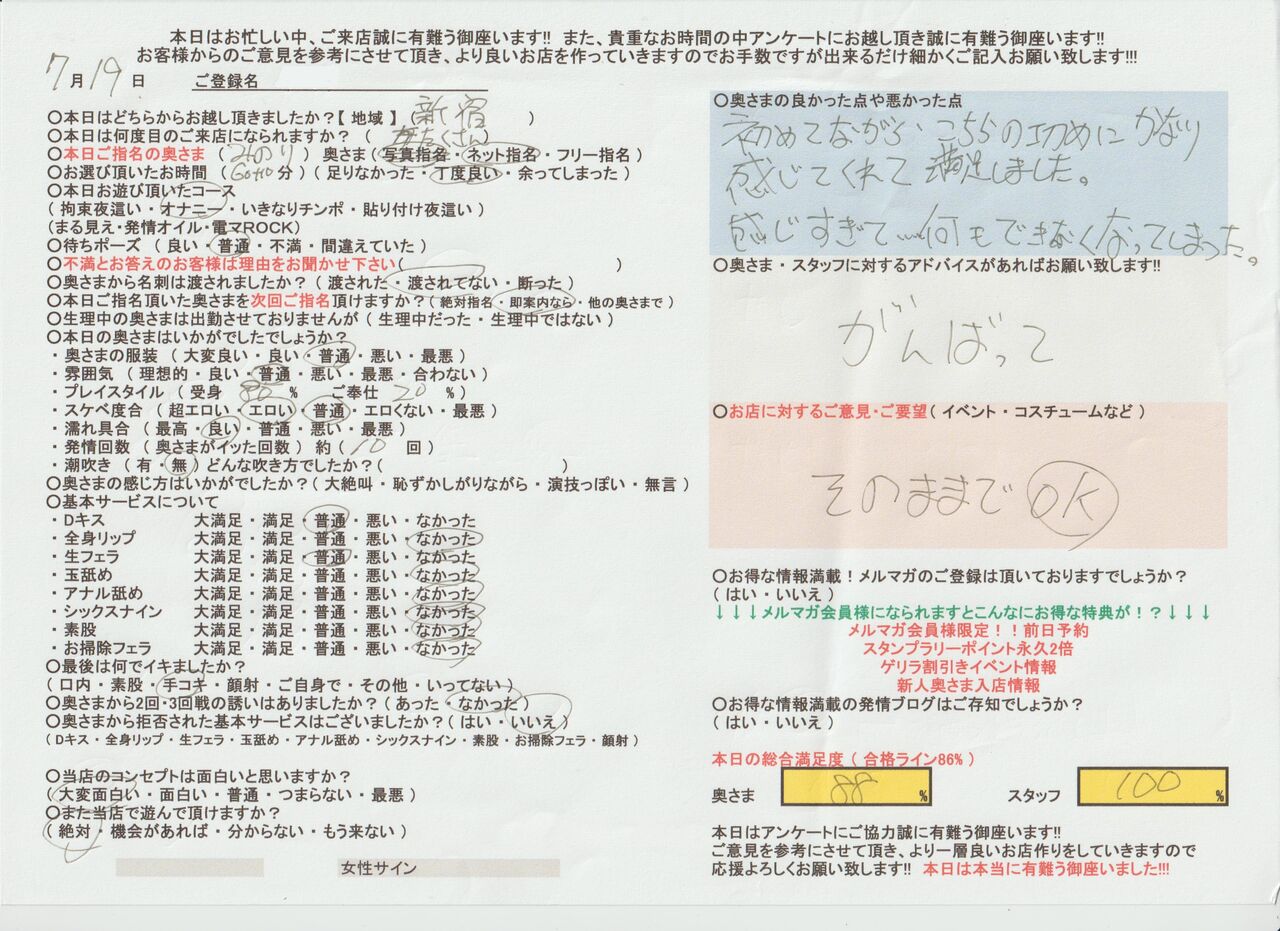 本日はお忙しい中、ご来店誠に有難う御座います!! また、貴重なお時間の中アンケートにお越し頂き誠に有難う御座います!!
お客様からのご意見を参考にさせて頂き、より良いお店を作っていきますのでお手数ですが出来るだけ細かくご記入お願い致します!!!
7月19日 ご登録名
〇本日はどちらからお越し頂きましたか?【 地域 】( 新宿 )
〇本日は何度目のご来店になられますか? ( たくさん
〇本日ご指名の奥さま ( みのり ) 奥さま ( 写真指名・ネット指名・フリー指名 )
〇お選び頂いたお時間 ( 60+10 分 ) ( 足りなかった・丁度良い・余ってしまった )
〇本日お遊び頂いたコース
( 拘束夜這い・オナニー・いきなりチンポ・貼り付け夜這い )
(まる見え・発情オイル・電マROCK)
〇待ちポーズ ( 良い・普通・不満・間違えていた )
〇不満とお答えのお客様は理由をお聞かせ下さい( )
〇奥さまから名刺は渡されましたか? ( 渡された・渡されてない・断った )
〇本日ご指名頂いた奥さまを次回ご指名頂けますか? ( 絶対指名・即案内なら・他の奥さまで )
〇生理中の奥さまは出勤させておりませんが ( 生理中だった・生理中ではない )
〇本日の奥さまはいかがでしたでしょうか?
・奥さまの服装 ( 大変良い・良い・普通・悪い・最悪 )
・雰囲気 ( 理想的・良い・普通・悪い・最悪・合わない )
・プレイスタイル ( 受身 80 % ご奉仕 20 % )
・スケベ度合 ( 超エロい・エロい・普通・エロくない・最悪 )
・濡れ具合 ( 最高・良い・普通・悪い・最悪 )
・発情回数 ( 奥さまがイッた回数 ) 約 ( 10 回 )
・潮吹き ( 有・無 ) どんな吹き方でしたか? ( )
〇奥さまの感じ方はいかがでしたか? ( 大絶叫・恥ずかしがりながら・演技っぽい・無言 )
〇基本サービスについて
・Dキス 大満足・満足・普通・悪い・なかった
・全身リップ 大満足・満足・普通・悪い・なかった
・生フェラ 大満足・満足・普通・悪い・なかった
・玉舐め 大満足・満足・普通・悪い・なかった
・アナル舐め 大満足・満足・普通・悪い・なかった
・シックスナイン 大満足・満足・普通・悪い・なかった
・素股 大満足・満足・普通・悪い・なかった
・お掃除フェラ 大満足・満足・普通・悪い・なかった
〇最後は何でイキましたか?
( 口内・素股・手コキ・顔射・ご自身で・その他・いってない )
〇奥さまから2回・3回戦の誘いはありましたか? ( あった・なかった )
〇奥さまから拒否された基本サービスはございましたか? ( はい・いいえ )
( Dキス・全身リップ・生フェラ・玉舐め・アナル舐め・シックスナイン・素股・お掃除フェラ・顔射 )
〇当店のコンセプトは面白いと思いますか?
( 大変面白い・面白い・普通・つまらない・最悪 )
〇また当店で遊んで頂けますか?
( 絶対・機会があれば・分からない・もう来ない )
女性サイン
〇奥さまの良かった点や悪かった点
初めてながら、こちらの攻めにかなり
感じてくれて満足しました。
感じすぎて…何もできなくなってしまった。
〇奥さま・スタッフに対するアドバイスがあればお願い致します!!
がんばって
〇お店に対するご意見・ご要望( イベント・コスチュームなど )
そのままでOK
〇お得な情報満載!メルマガのご登録は頂いておりますでしょうか?
( はい・いいえ )
↓↓↓メルマガ会員様になられますとこんなにお得な特典が!?↓↓↓
メルマガ会員様限定!!前日予約
スタンプラリーポイント永久2倍
ゲリラ割引きイベント情報
新人奥さま入店情報
〇お得な情報満載の発情ブログはご存知でしょうか?
( はい・いいえ )
本日の総合満足度 ( 合格ライン86% )
奥さま 88 % スタッフ 100 %
本日はアンケートにご協力誠に有難う御座います!!
ご意見を参考にさせて頂き、より一層良いお店作りをしていきますので
応援よろしくお願い致します!! 本日は本当に有難う御座いました!!!